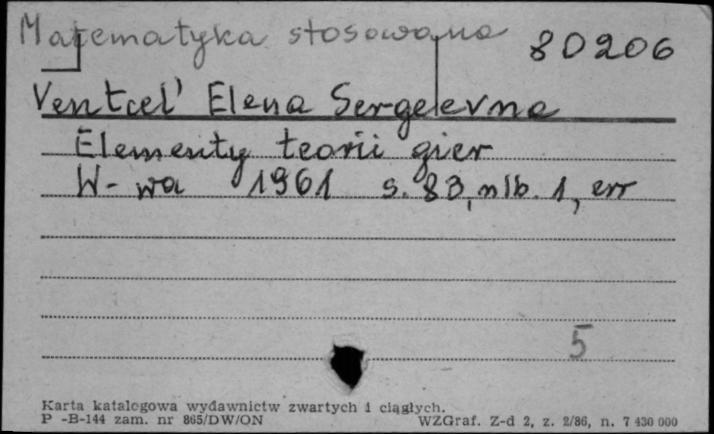 Matematyka stosowana 80206
Ventcel' Elena Sergeevna
Elementy teorii gier
W-wa 1961 s. 83, nlb. 1, err
5
Karta katalogowa wydawnictw zwartych i ciągłych.
P -B-144 zam. nr 865/DW/ON WZGraf. Z-d 2, z. 2/86, n. 7 430 000